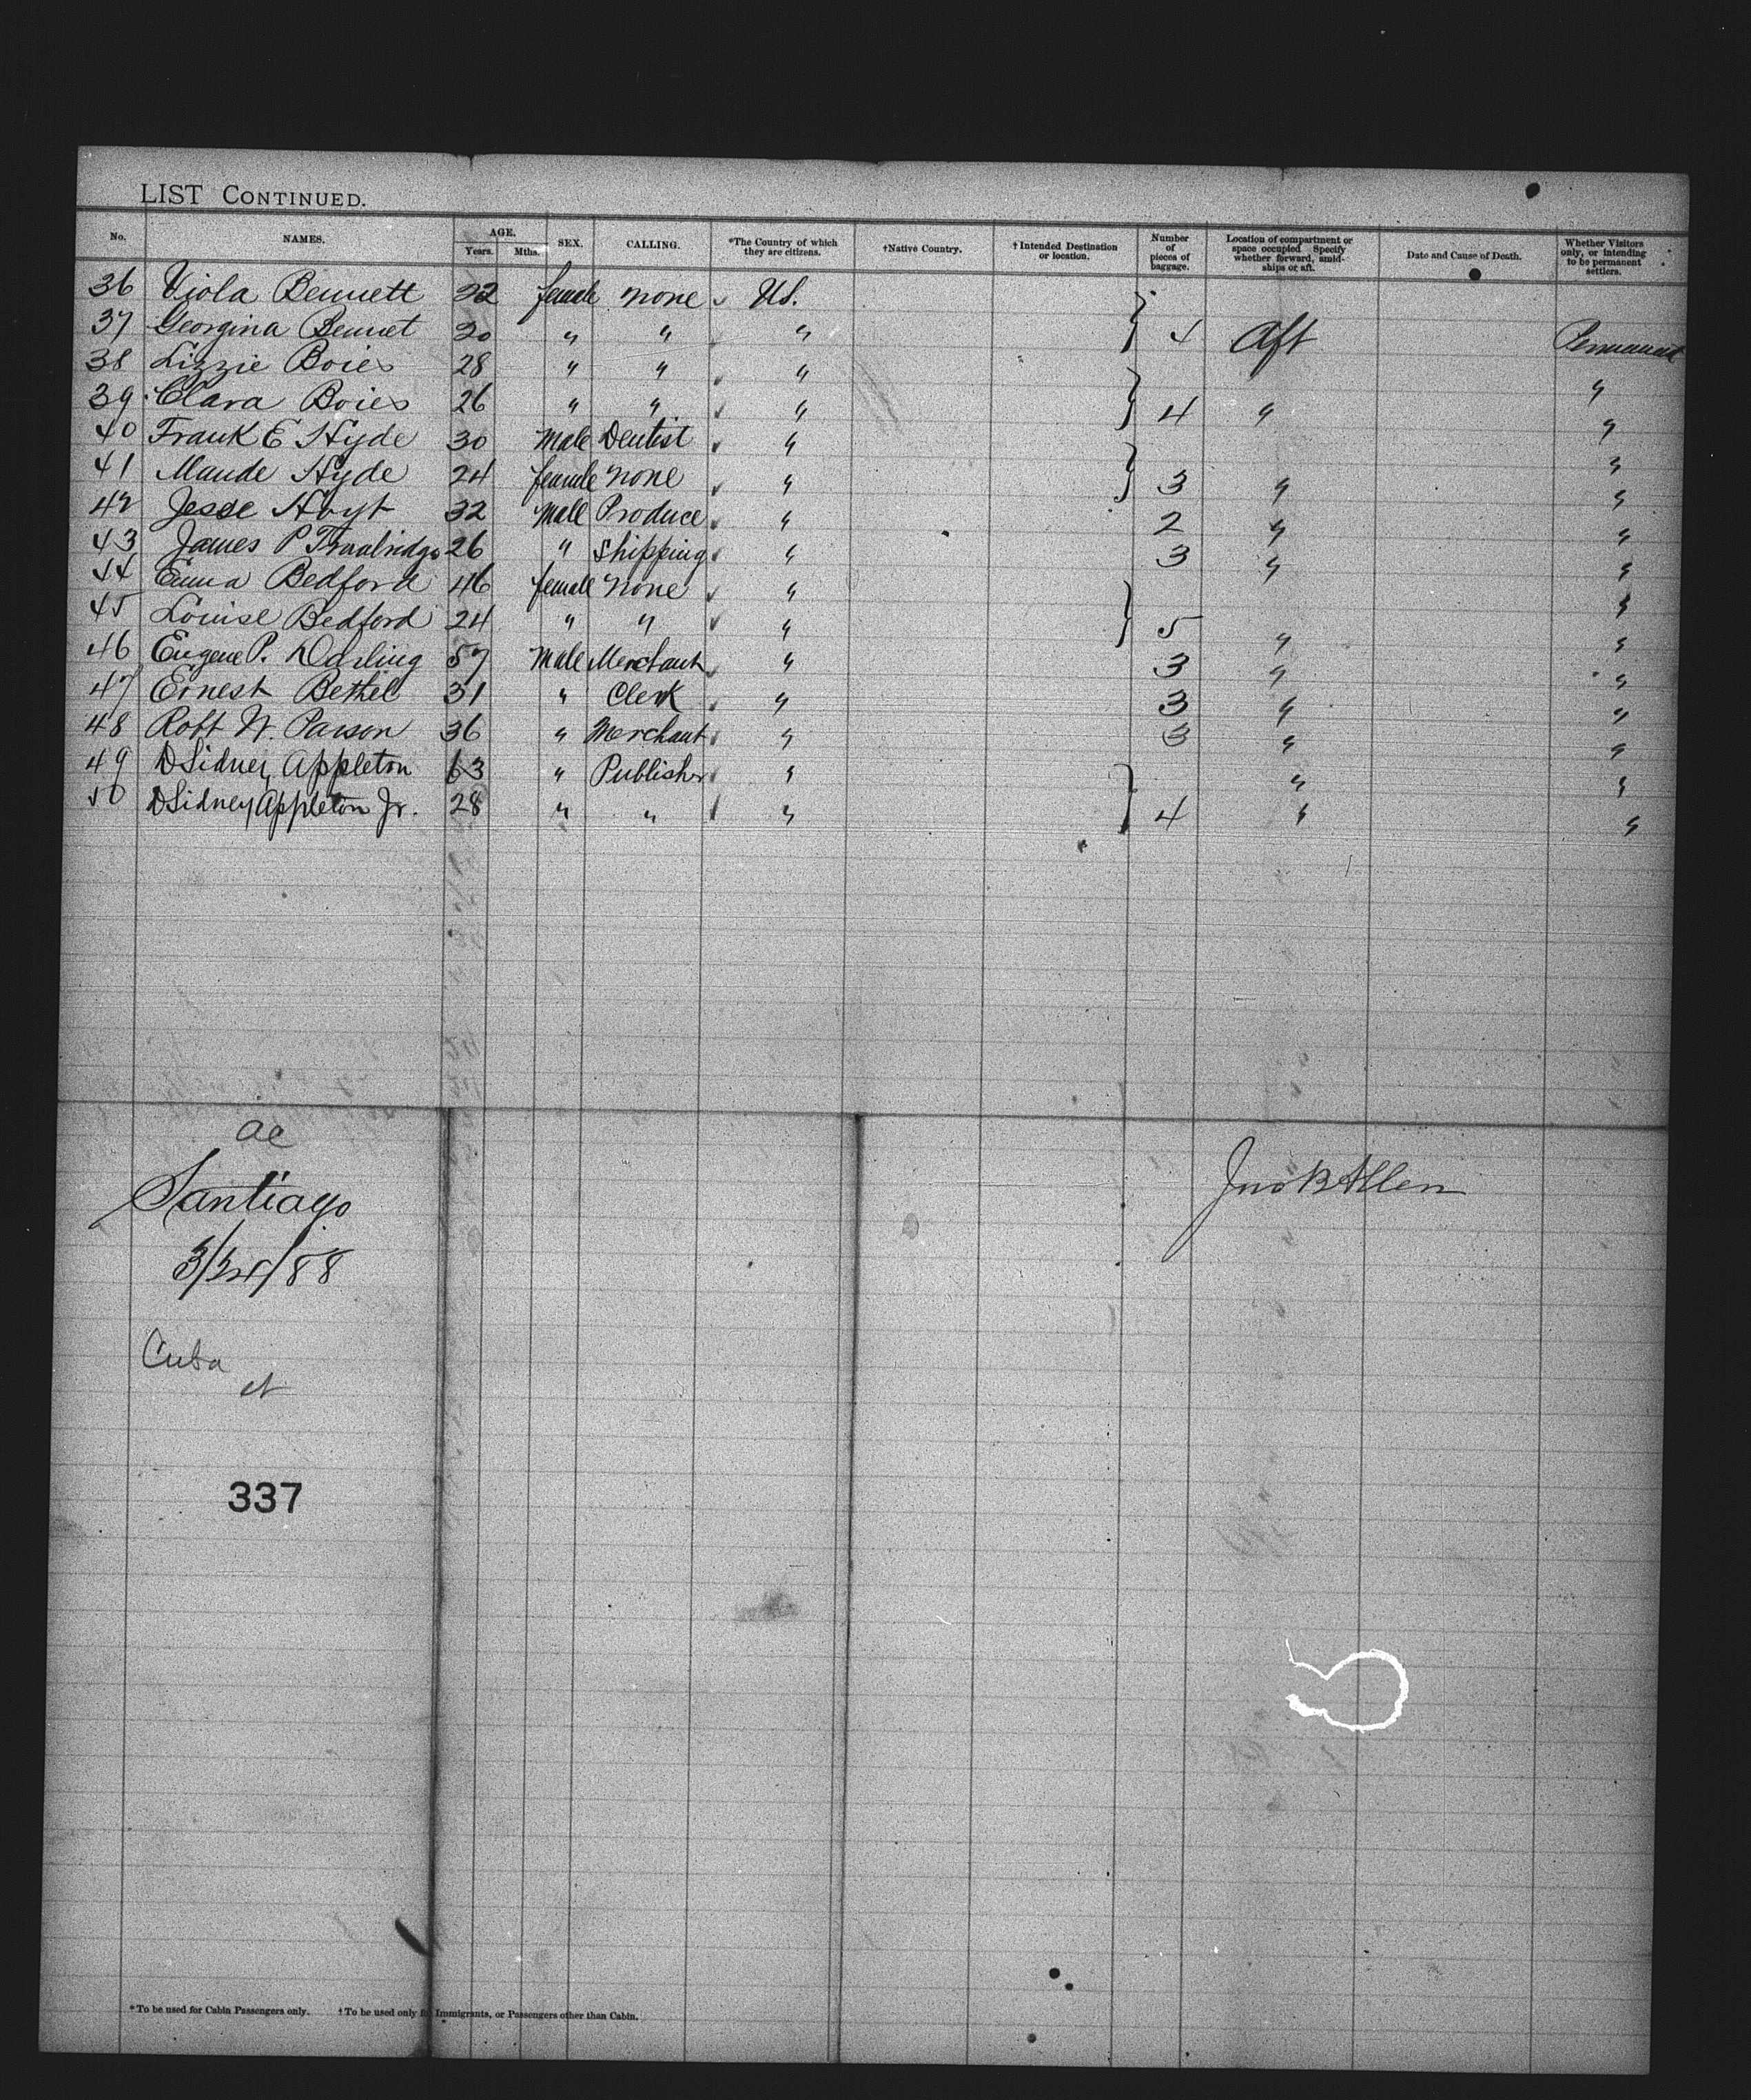 LIST CONTINUED.
No. NAMES. AGE. Years. Mths. SEX. CALLING. *The Country of which they are citizens. †Native Country. †Intended Destination or location. Number of pieces of baggage. Location of compartment or space occupied Specify whether forward, amid-ships or aft. Date and Cause of Death. Whether Visitors only, or intending to be permanent settlers.
36 Viola Bennett 22 female none US.
37 Georgina Bennet 20 " " " 4 Aft Permanent
38 Lizzie Boies 28 " " " "
39 Clara Boies 26 " " " 4 " "
40 Frank E Hyde 30 Male Dentist " "
41 Maude Hyde 24 female none " 3 " "
42 Jesse Hoyt 32 Male Produce " 2 " "
43 James P 26 " Shipping " 3 " "
44 Emma Bedford 46 female none " "
45 Louise Bedford 24 " " " 5 " "
46 Eugene P. Darling 57 Male Merchant " 3 " "
47 Ernest Bethel 31 " Clerk " 3 " "
48 Robt W. Parson 36 " Merchant " 3 " "
49 D Sidney Appleton 63 " Publisher " " "
50 D Sidney Appleton Jr. 28 " " " 4 " "
ae
Santiago
Jno B Allen
Cuba
337
*To be used for Cabin Passengers only. †To be used only for Immigrants, or Passengers other than Cabin.